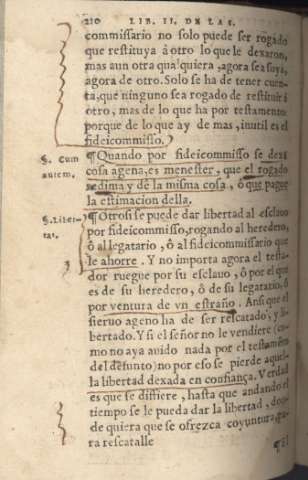 210 LIB. II. DE LAS.
commissario no solo puede ser rogado
que restituya à otro lo que le dexaron,
mas aun otra qualquiera, agora sea suya,
agora de otro. Solo se ha de tener cuen-
ta, que ninguno sea rogado de restituir à
otro, mas de lo que ha por testamento:
porque de lo que ay de mas, inutil es el
fideicommisso.
§. Cum
autem.
¶Quando por fideicommisso se dexa
cosa agena, es menester, que el rogado
redima y dè la misma cosa, ò que pague
la estimacion della.
§. Liber-
tas.
¶Otrosi se puede dar libertad al esclauo
por fideicommisso, rogando al heredero,
ò al legatario, ò al fideicommissario que
le ahorre. Y no importa agora el testa-
dor ruegue por su esclauo, ò por el que
es de su heredero, ò de su legatario, ò
por ventura de vn estraño. Ansi que el
sieruo ageno ha de ser rescatado, y li-
bertado. Y si el señor no le vendiere (co-
mo no aya auido nada por el testamẽto
del defunto) no por eso se pierde aquella
la libertad dexada en confiança. Verdad
es que se differe, hasta que andando el
tiempo se le pueda dar la libertad, don-
de quiera que se ofrezca coyuntura pa-
ra rescatalle